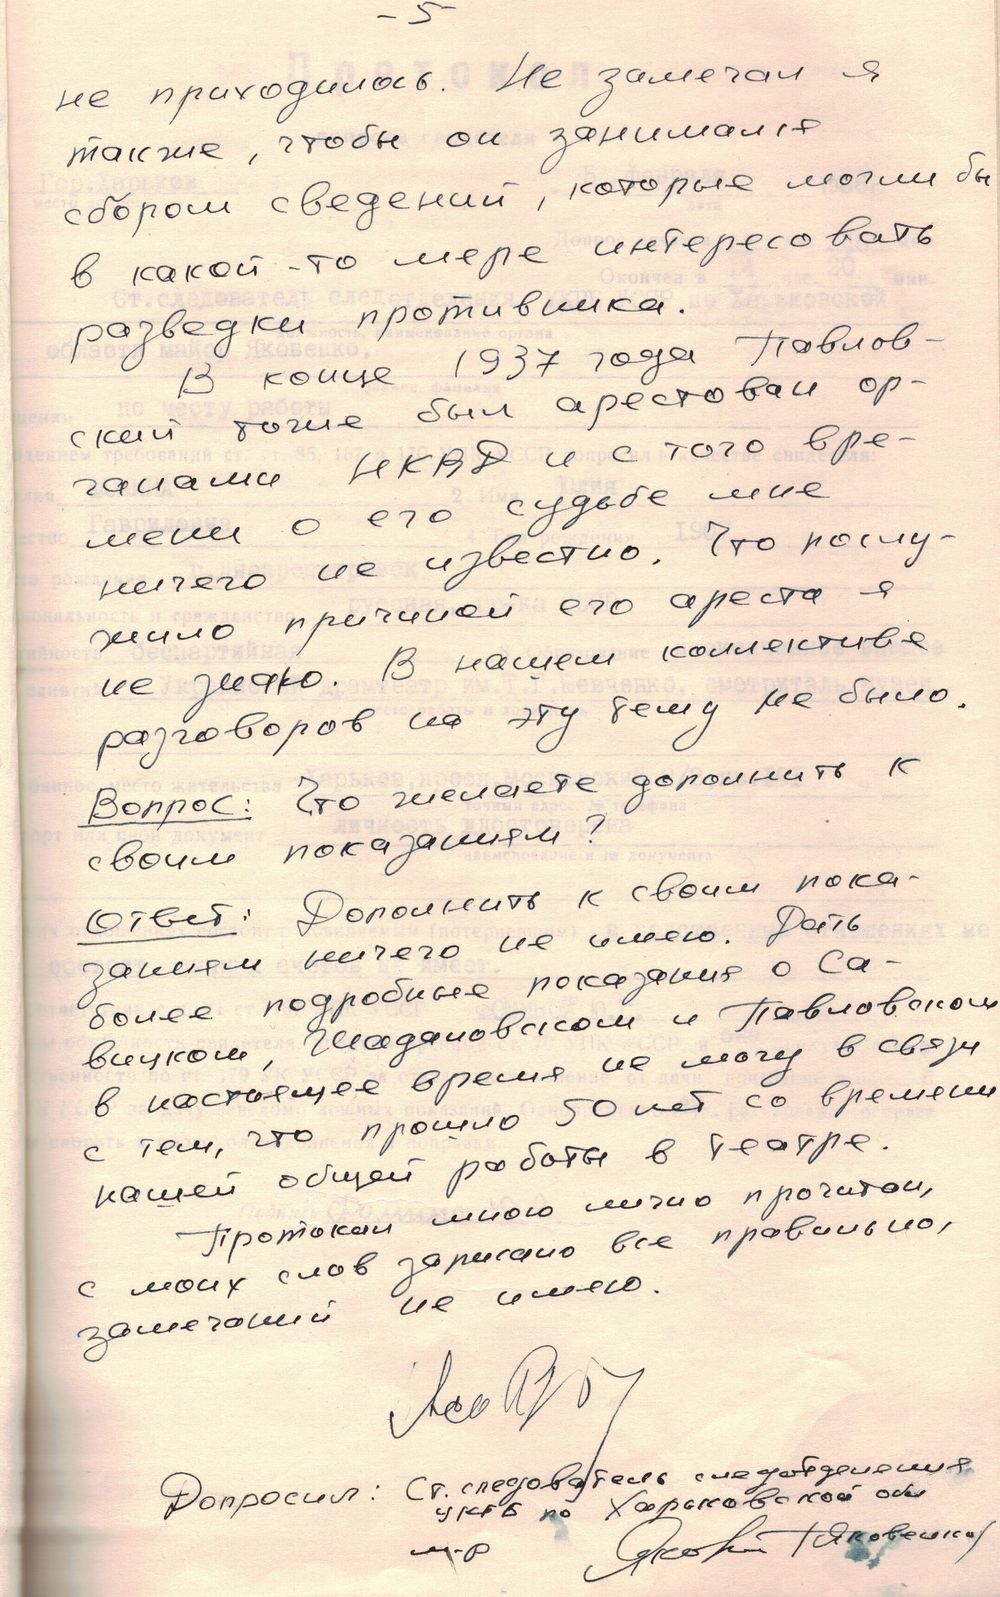 - 5 -
не приходилось. Не замечал я
также, чтобы он занимался
сбором сведений, которые могли бы
в какой-то мере интересовать
разведки противника.
В конце 1937 года Павлов-
ский тоже был арестован ор-
ганами НКВД и с того вре-
мени о его судьбе мне
ничего не известно. Что послу-
жило причиной его ареста я
не знаю. В нашем коллективе
разговоров на эту тему не было.
Вопрос: Что желаете дополнить к
своим показаниям?
Ответ: Дополнить к своим пока-
заниям ничего не имею. Дать
более подробные показания о Са-
вицком, Жадановском и Павловском
в настоящее время не могу в связи
с тем, что прошло 50 лет со времени
нашей общей работы в театре.
Протокол мною лично прочитан,
с моих слов записано все правильно,
замечаний не имею.
Допросил: Ст. следователь следотделения
УКГБ по Харьковской обл
м-р Яковенко